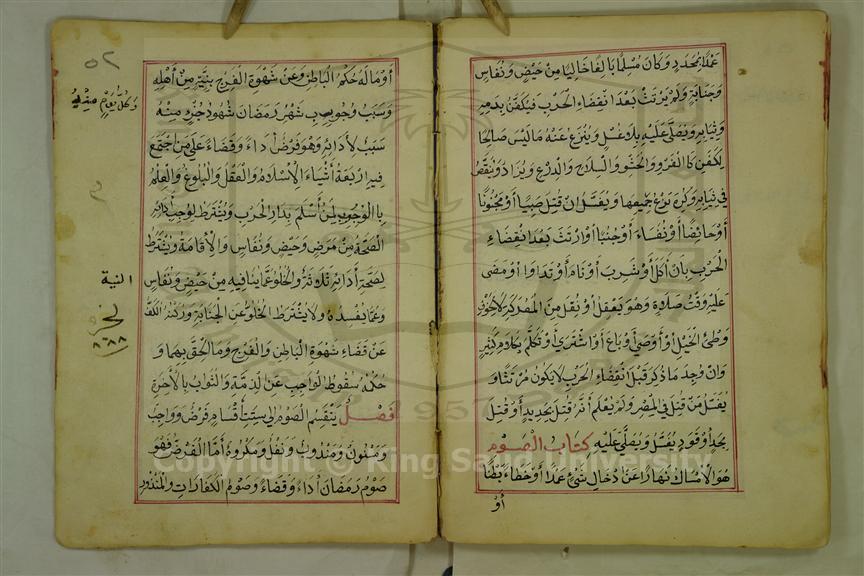 عمدا بمحدد وكان مسلما بالغا خاليا من حيض ونفاس
وجنابة ولم يرتث بعد انقضاء الحرب فيكفن بدمه
وثيابه ويصلى عليه بلا غسل وينزع عنه ما ليس صالحا
لكفن كالفرو والحشو والسلاح والدرع ويزاد وينقص
في ثيابه وكره نزع جميعها ويغسل ان قتل صبيا او مجنونا
أو حائضا أو نفساء أو جنبا او ارتث بعد انقضاء
الحرب بان أكل أو شرب أو نام أو تداوا او مضى
عليه وقت صلاة وهو يعقل أو نقل من المعركة لا خوف
وطئ الخيل أو أوصي أو باع أو اشترى أو تكلم بكلام كثير
وان وجد ما ذكر قبل انقضاء الحرب لا يكون مرتثا و
يغسل من قتل في المصر ولم يعلم أنه قتل بحديد أو قتل
بحد أو قود يغسل ويصلى عليه كتاب الصوم
هو الامساك نهارا عن ادخال شئ عمدا أو خطاء بطنا
أو
٥٢
أو ماله حكم الباطن وعن شهوة الفرج بنية من أهله
وسبب وجوب شهر رمضان شهود جزء منه
وكل يوم منه
سبب لادائه وهو فرض أداء وقضاء على من اجتمع
فيه اربعة أشياء الاسلام والعقل والبلوغ والعلم
بالوجوب لمن أسلم بدار الحرب ويشترط لوجوب أدائه
الصحة من مرض وحيض ونفاس والاقامة ويشترط
لصحة أدائه ثلاثة والخلو عما ينافيه من حيض ونفاس
النية
وعما يفسده ولا يشترط الخلو عن الجنابة وركنه الكف
عن قضاء شهوة الباطن والفرج وما الحق بهما و
حكمه سقوط الواجب عن الذمة والثواب بالآخرة
فصل ينقسم الصوم الى ستة أقسام فرض وواجب
ومسنون ومندوب ونفل ومكروه أما الفرض فهو
صوم رمضان أداء وقضاء وصوم الكفارات والمنذور
Copyright © King Saud University
1957